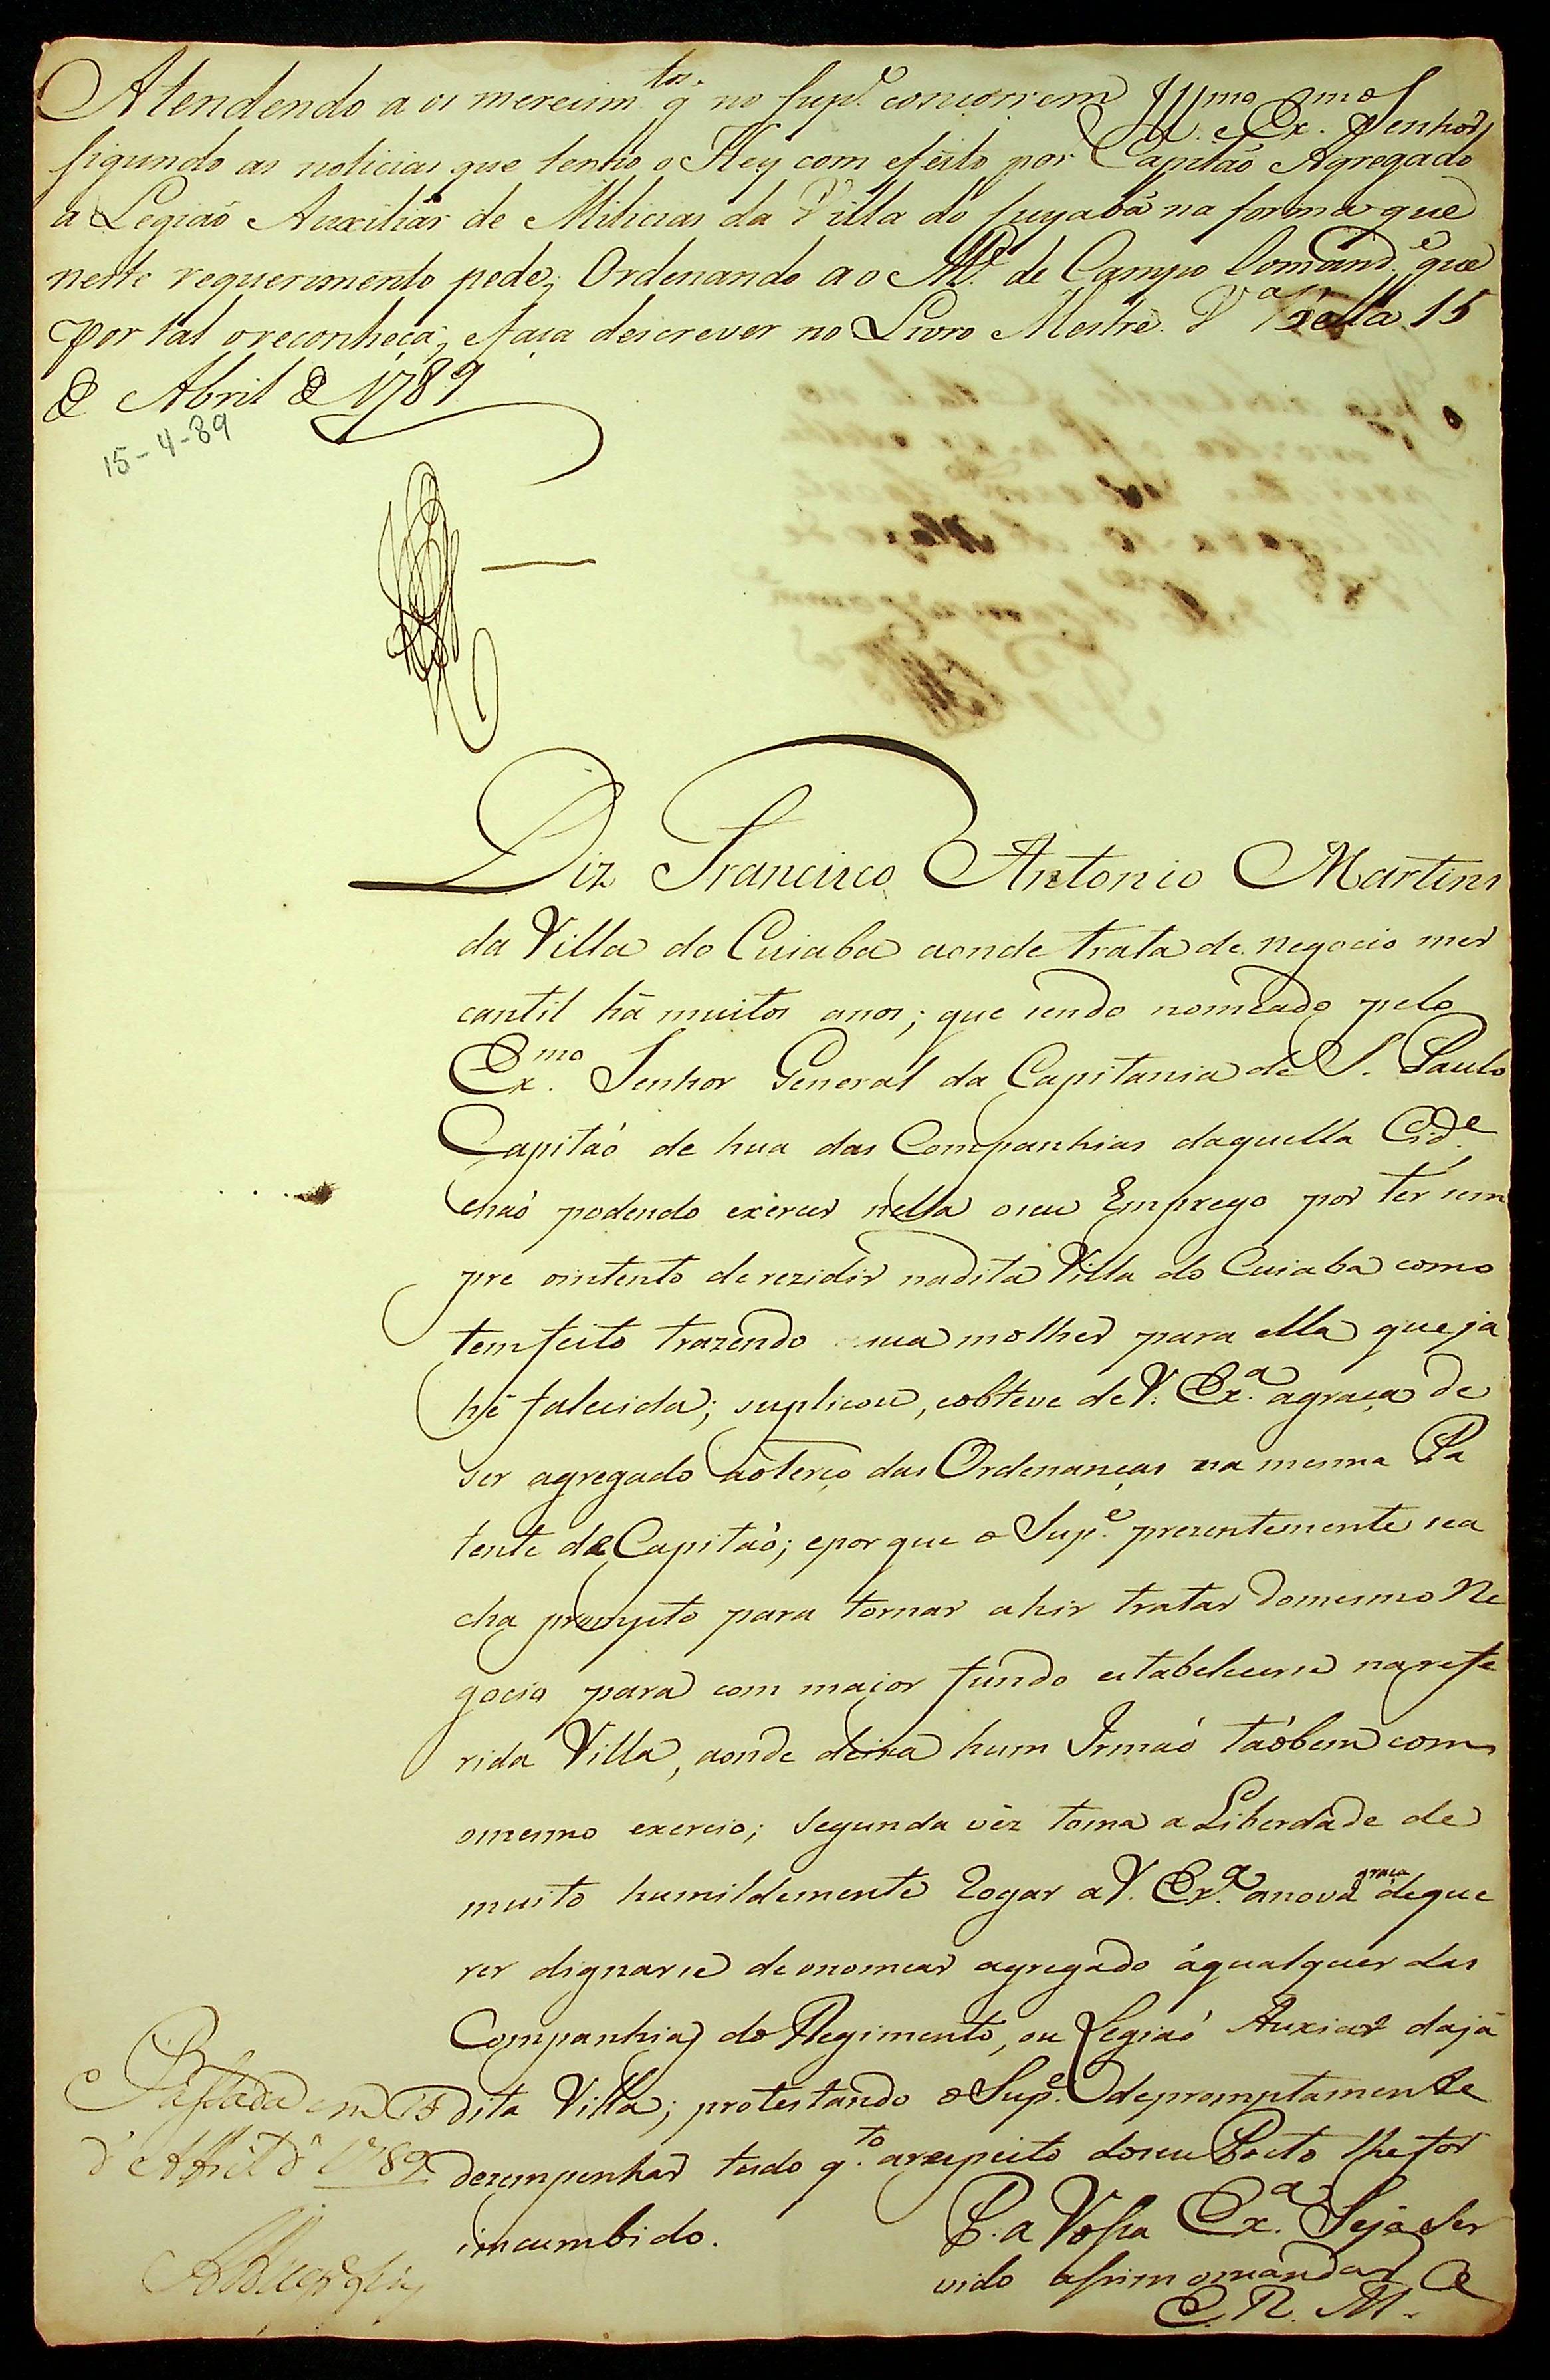 Atendendo a os merecim.tos q̃ no Sup.e concorrem
Ill.mo e Ex.mo Senhor
sigundo as noticias que tenho o Hey com efeito por Capitão Agregado
a Legiaõ Auxiliar de Milicias da Villa do Cuyabá na forma que
neste requerimento pede; Ordenando ao M.e de Campo Comand.e que
por tal o reconheça, e faça descrever no Livro Mestre. V.a Bella 15
de Abril de 1789
15-4-89
Diz Francisco Antonio Martins
da Villa do Cuiaba aonde trata de negocio mer
cantil hâ muitos anos; que sendo nomeado pelo
Ex.mo Senhor General da Capitania de S. Paulo
Capitaó de hua das Companhias daquella Cid.e
enaó podendo exercer nella oseu Emprego por ter sem
pre ointento derezidir nadita Villa do Cuiaba como
temfeito trazendo sua molher para ella queja
hé falecida; suplicou, eobteve de V. Ex.a agraça de
ser agregado aóterço das Ordenanças na mesma Pa
tente de Capitaó; eporque o Sup.e prezentemente sea
cha prompto para tornar ahir tratar domesmo Ne
gocio para com maior fundo estabelecerse narefe
rida Villa, aonde deixa hum Irmaó taóbem com
omesmo exercio; segunda vêz toma a Liberdade de
muito humildemente Rogar a V. Ex.a anova graça deque
rer dignarse deonomear agregado áqualquer das
Companhias do Regimento, ou Legiaó Auxiar dajá
dita Villa; protestando o Sup.e depromptamente
dezempenhar tudo q.to arespeito doseu Posto lhefor
incumbido.
P. a Vossa Ex.a Seja Ser
vido assim omandar
E. R. M.
Passada em 15
d' Abril d' 1789